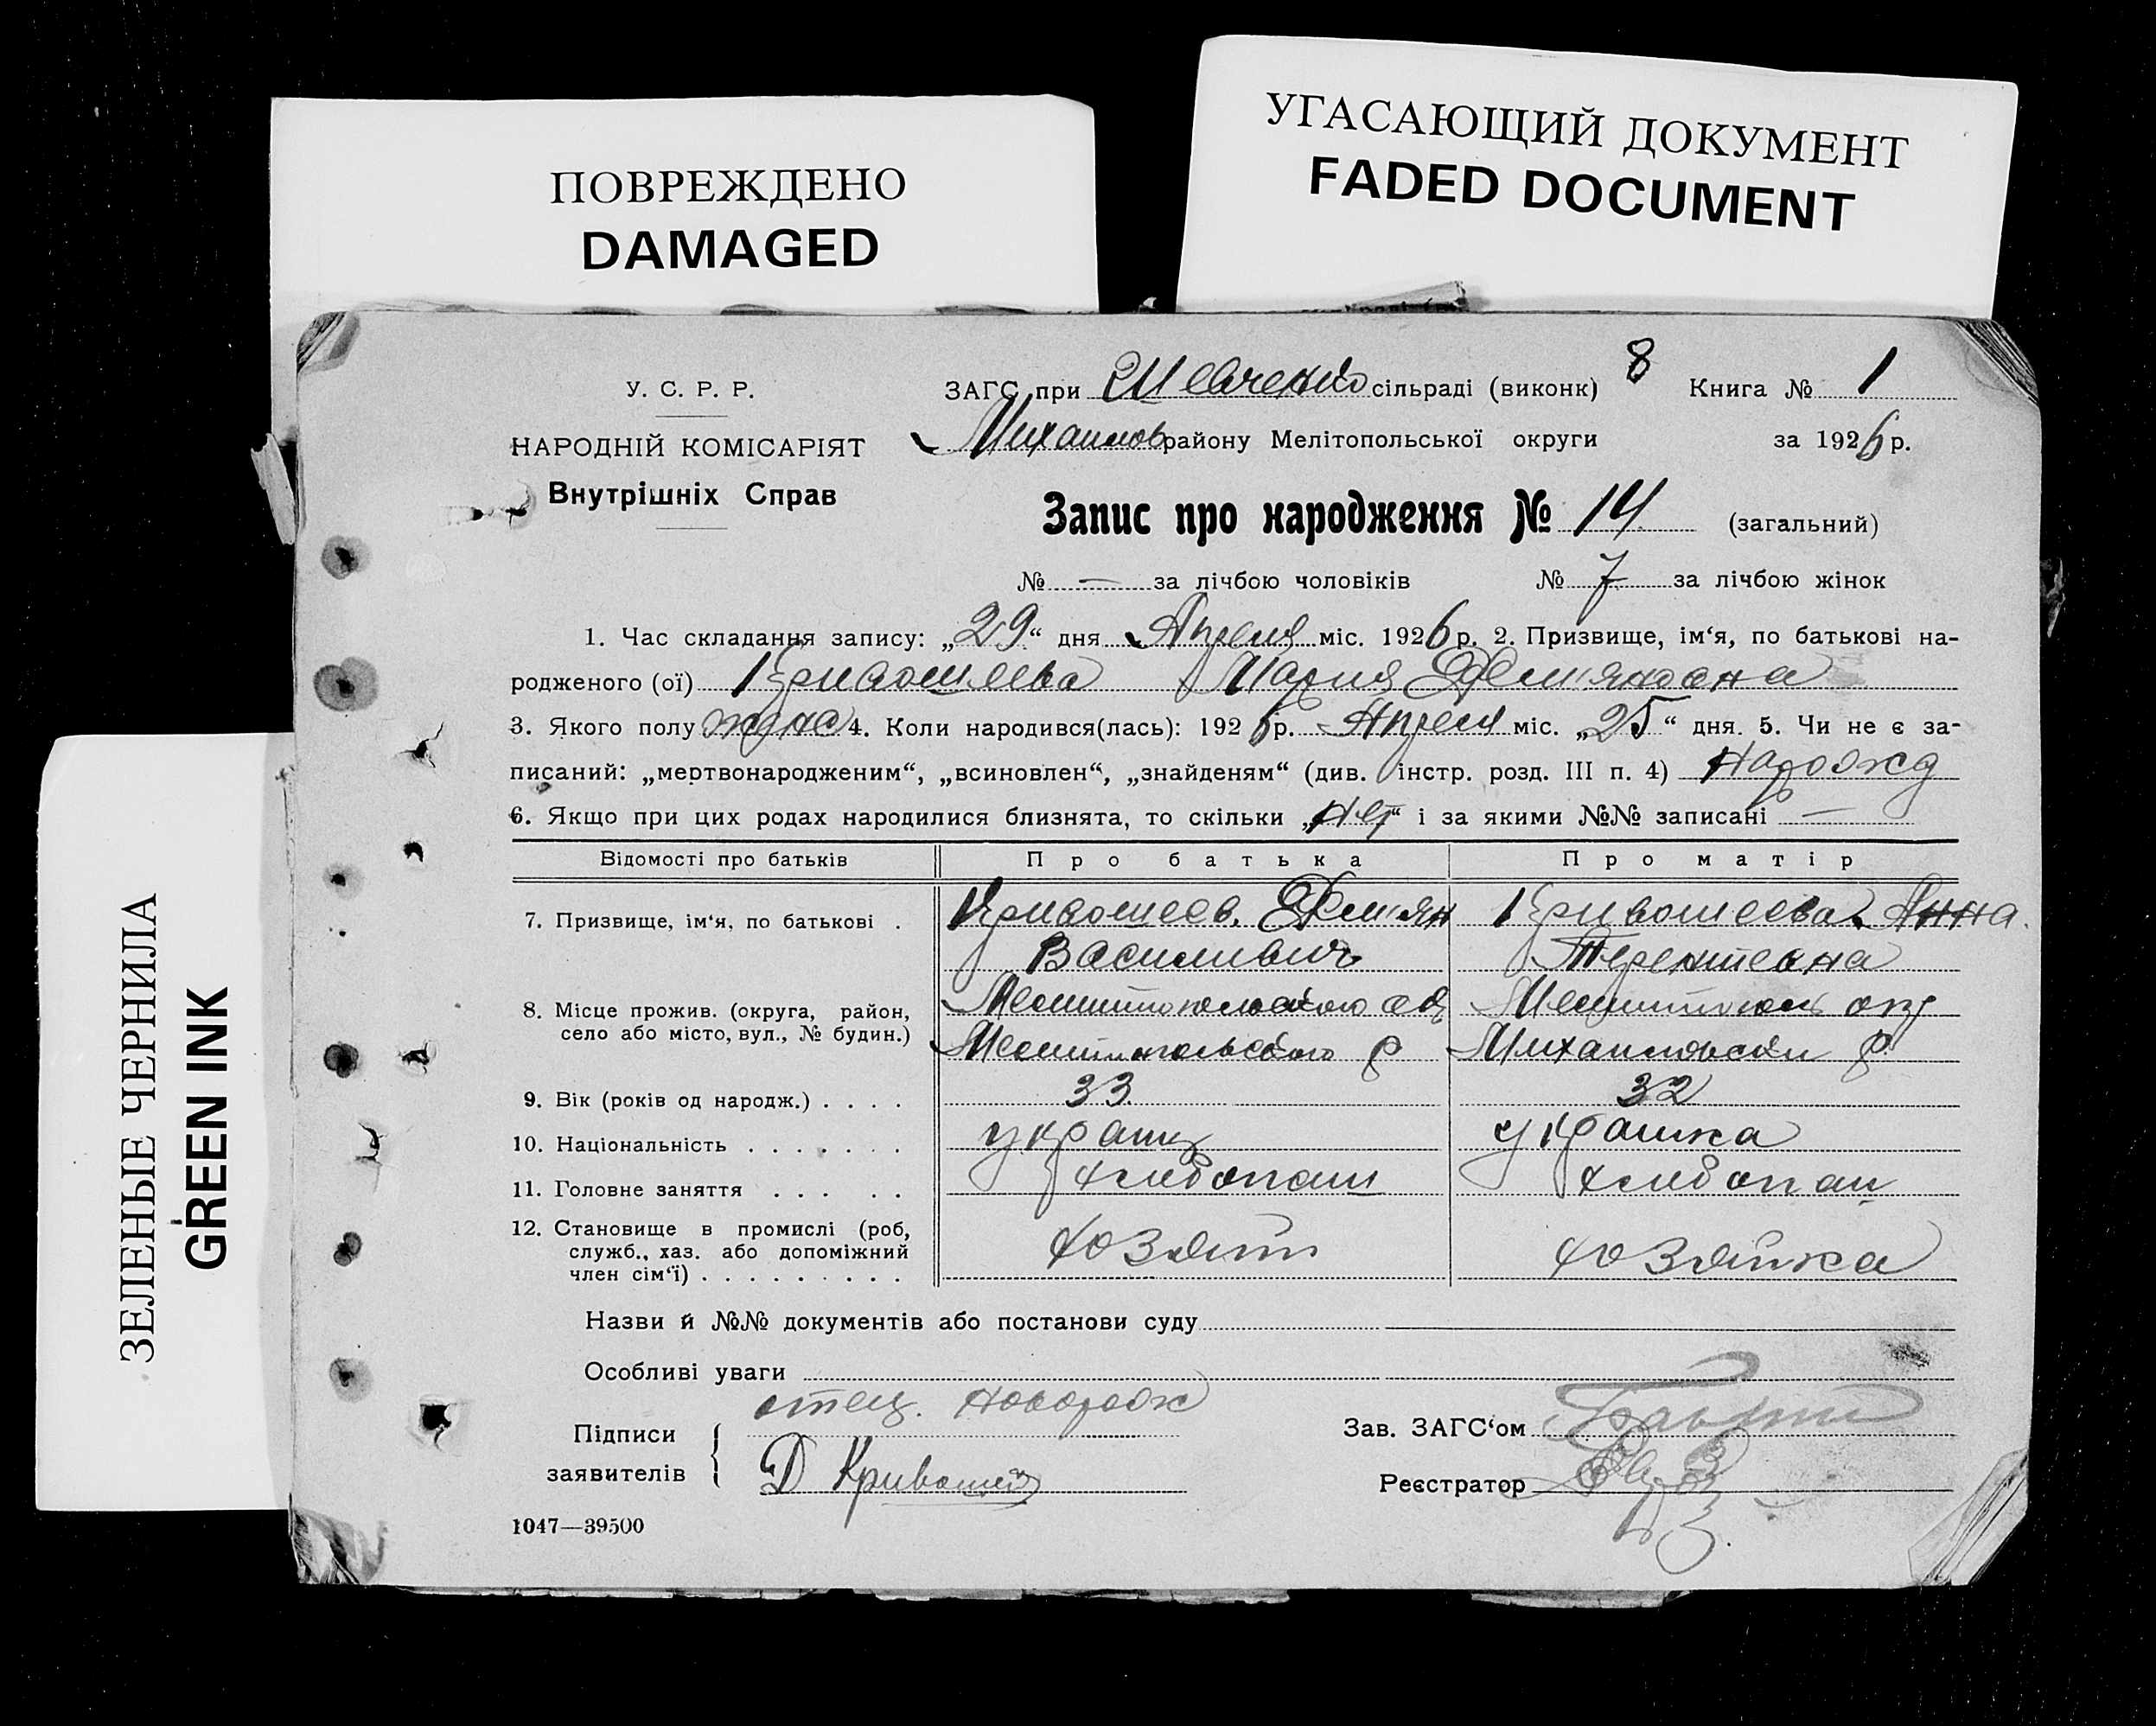 ПОВРЕЖДЕНО
DAMAGED
УГАСАЮЩИЙ ДОКУМЕНТ
FADED DOCUMENT
ЗЕЛЕНЫЕ ЧЕРНИЛА
GREEN INK
У. С. Р. Р.
НАРОДНІЙ КОМІСАРІЯТ
Внутрішніх Справ
ЗАГС при Шевченко сільраді (виконк) 8 Книга № 1
Михайлов району Мелітопольської округи за 1926 р.
Запис про народження № 14 (загальний)
№ — за лічбою чоловіків № 7 за лічбою жінок
1. Час складання запису: „29“ дня Апреля міс. 1926 р. 2. Призвище, ім‘я, по батькові на-
родженого (ої) Кривошеева Мария Демяновна
3. Якого полу женс 4. Коли народився(лась): 1926 р. Апреля міс. „25“ дня. 5. Чи не є за-
писаний: „мертвонародженим“, „всиновлен“, „знайденям“ (див. інстр. розд. III п. 4) Нарожд
6. Якщо при цих родах народилися близнята, то скільки „нет“ і за якими №№ записані —
Відомості про батьків Про батька Про матір
7. Призвище, ім‘я, по батькові . Кривошеев. Демян Кривошеева Анна.
Василивич Терентевна
8. Місце прожив. (округа, район, Мелитопольского Мелитополь окр
село або місто, вул., № будин.) Мелитопольского р Михайловский р
9. Вік (років од народж.) . . . . 33 32
10. Національність . . . . . . . украин украинка
11. Головне заняття . . . . . хлебопаш хлебопаш
12. Становище в промислі (роб,
служб., хаз. або допоміжний хозяин хозяйка
член сім‘ї) . . . . . . . . .
Назви й №№ документів або постанови суду
Особливі уваги
отец. новорожд
Підписи
заявителів
Д Кривошей
Зав. ЗАГС‘ом
Реєстратор
1047—39500